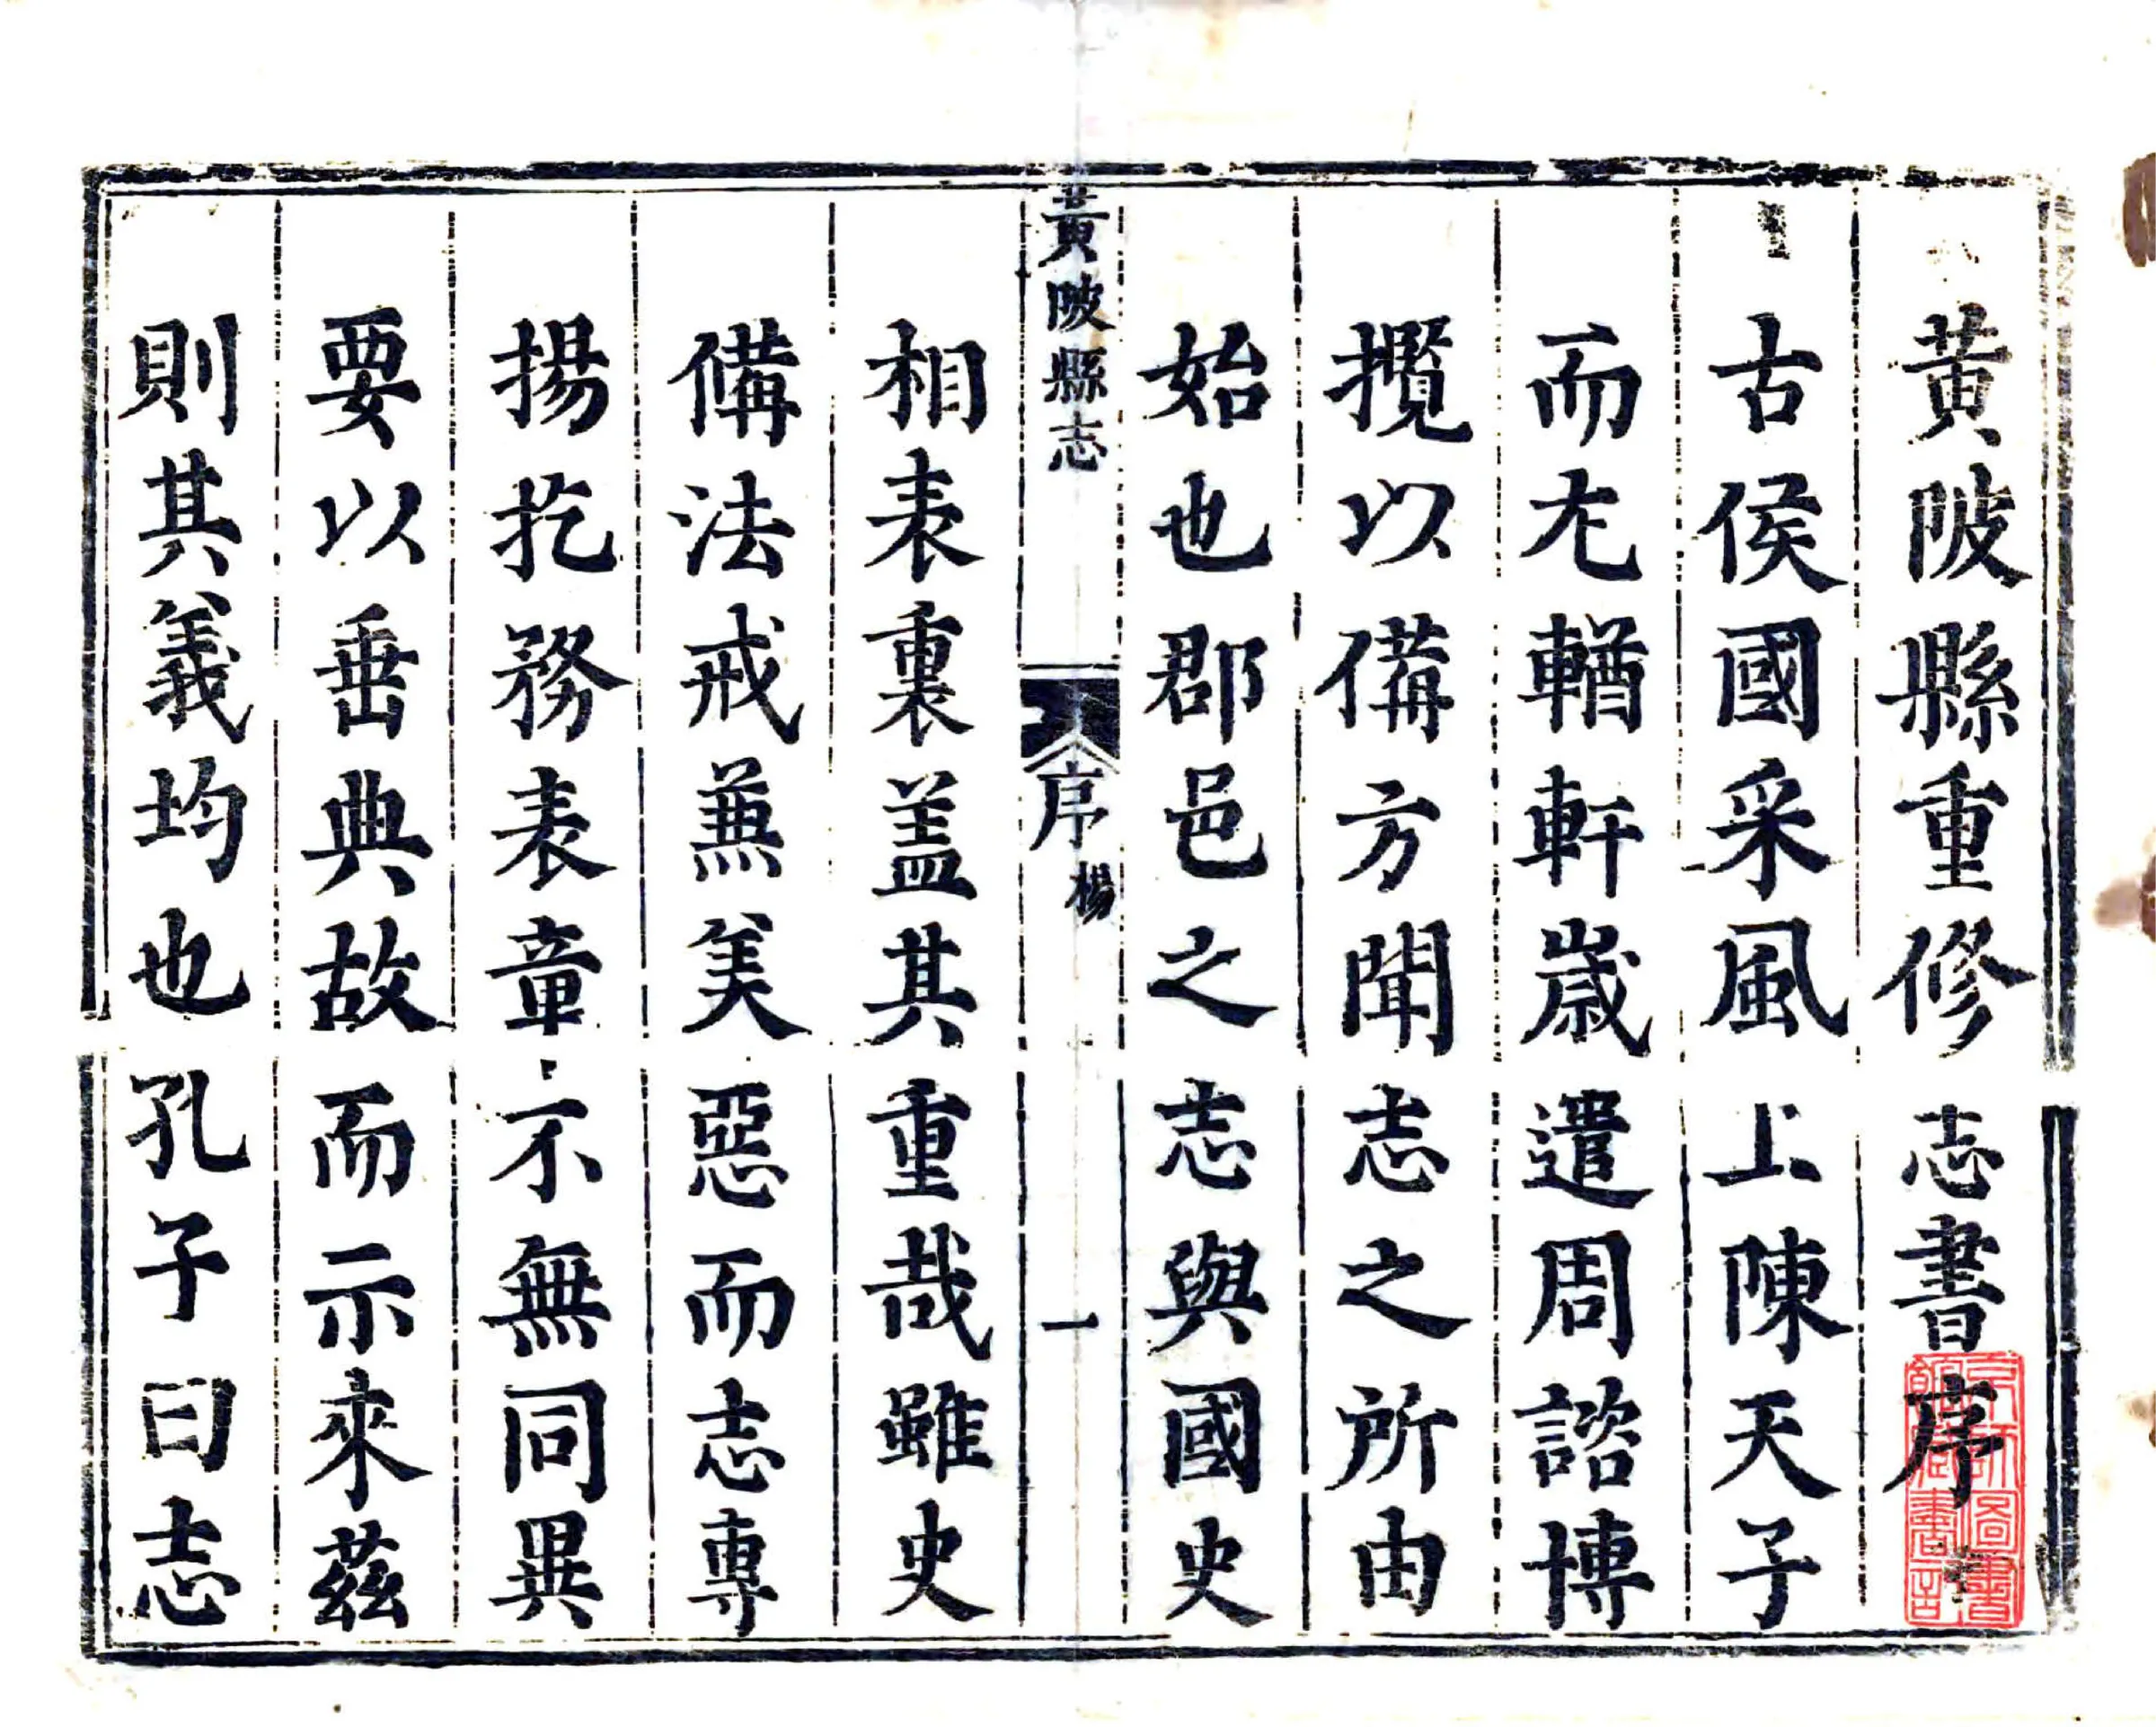 黃陂縣重修志書序
古侯國采風上陳天子
而尢輶軒歳遣周諮博
攬以備方聞志之所由
始也郡邑之志與國史
黃陂縣志
序
楊
一
相表裏盖其重哉雖史
備法戒蕪美惡而志專
揚扢務表章不無同異
要以垂典故而示來茲
則其義均也孔子曰志